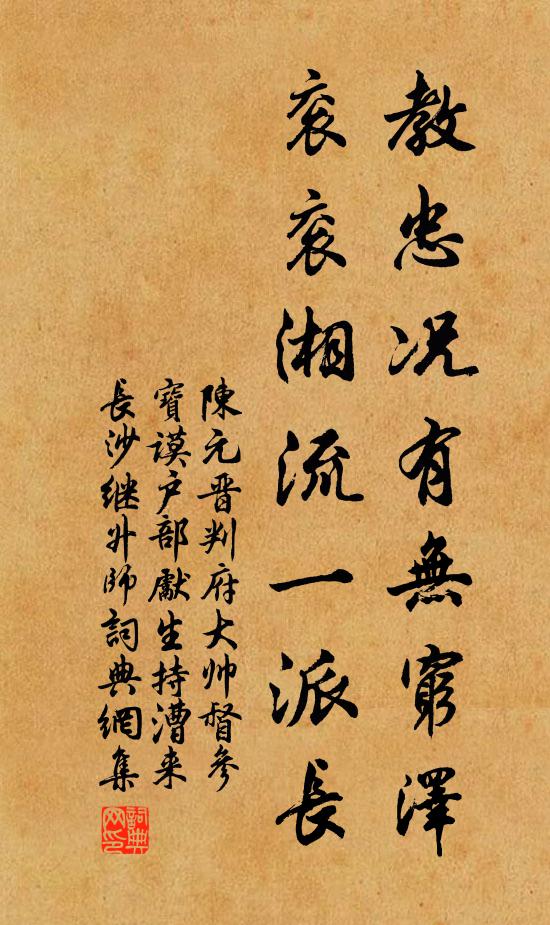 教忠况有無窮澤
衮衮湘流一派長
陳元晋判府大帅督參
寶謨户部獻生持漕来
長沙继升師詞典網集
詞典网印